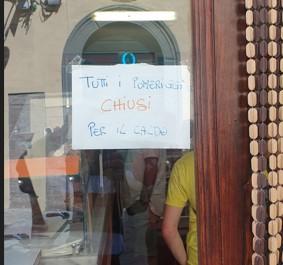 TUTTI I POMERIGGI
CHIUSI
PER IL CALDO